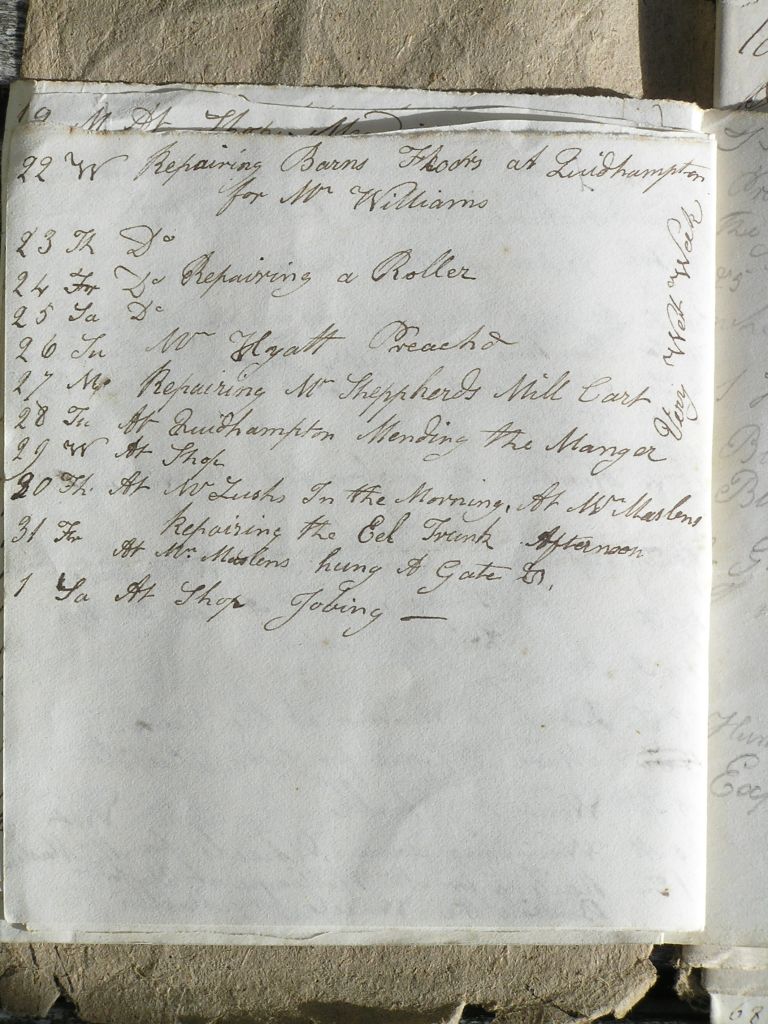 19 M At Shop
22 W Repairing Barns Floors at Quidhampton
for Mr Williams
23 Th Do
24 Fr Do Repairing a Roller
25 Sa Do
26 Su Mr Hyatt Preachd
27 Mo Repairing Mr Sheppherds Mill Cart
28 Tu At Quidhampton Mending the Manger
29 W At Shop
30 Th At Mr Lushs In the Morning, At Mr Maslens
Repairing the Eel Trunk Afternoon
31 Fr At Mr Maslens hung A Gate &c,
1 Sa At Shop Jobing —
Very Wet Week